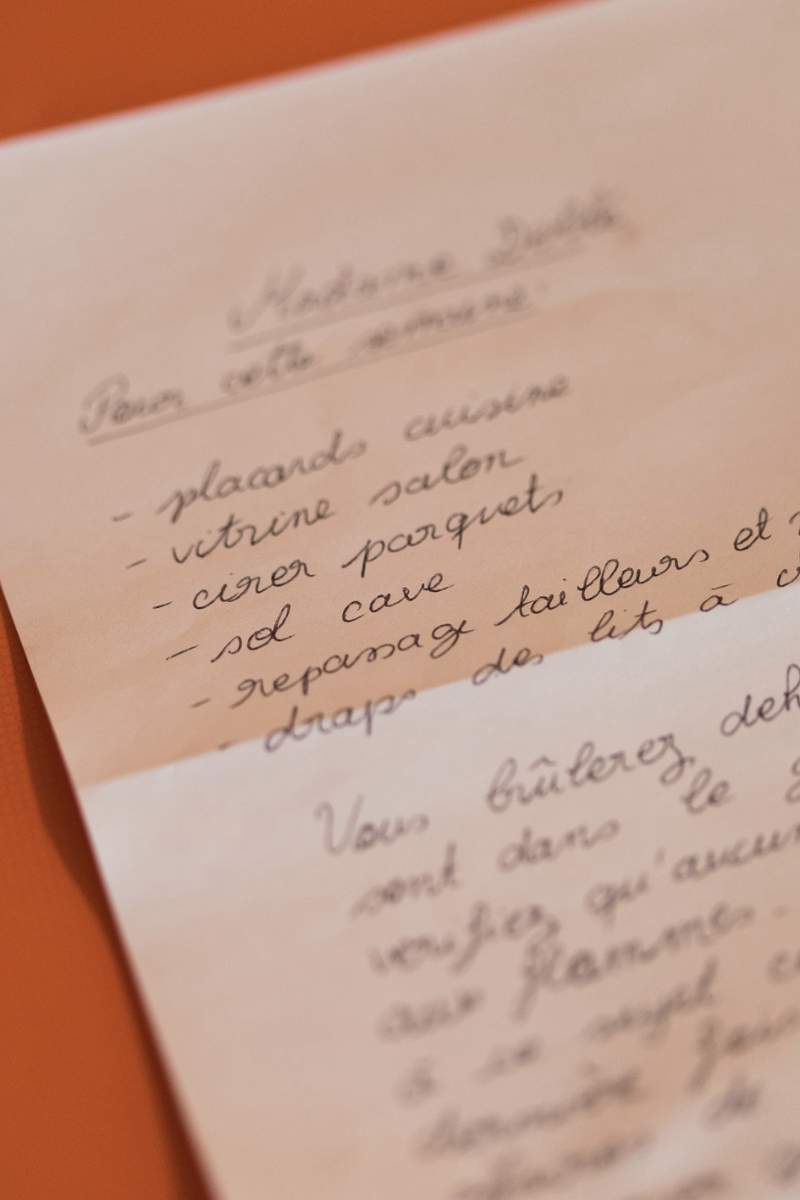 Madame
Pour cette semaine:
- placards cuisine
- vitrine salon
- cirer parquets
- sol cave
- repassage tailleurs et
- draps des lits à
Vous brûlerez deh
sont dans le
vérifiez qu'aucun
aux flammes.
à ce sujet
dernière fois